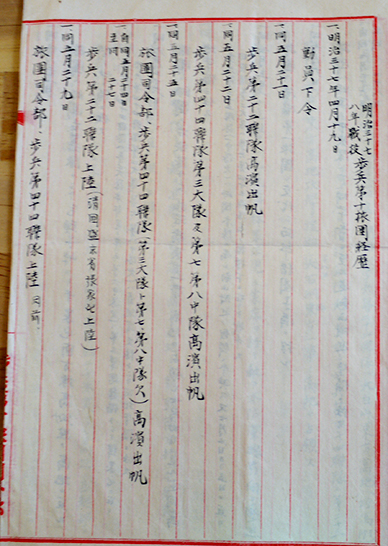 明治三十七
八年戦役 歩兵第十旅団経歴
一、明治三十七年四月十九日
動員下令
一、同五月二十一日
歩兵第二十二聯隊高濱出帆
一、同五月二十二日
歩兵第四十四聯隊第三大隊及第七第八中隊高濱出帆
一、同五月二十五日
旅團司令部、歩兵第四十四聯隊(第三大隊ト第七第八中隊欠)高濱出帆
一、自同五月二十四日
至同二十七日
歩兵第二十二聯隊上陸(清国盛京省張家屯上陸)
一、同五月二十九日
旅團司令部、歩兵第四十四聯隊上陸 同前